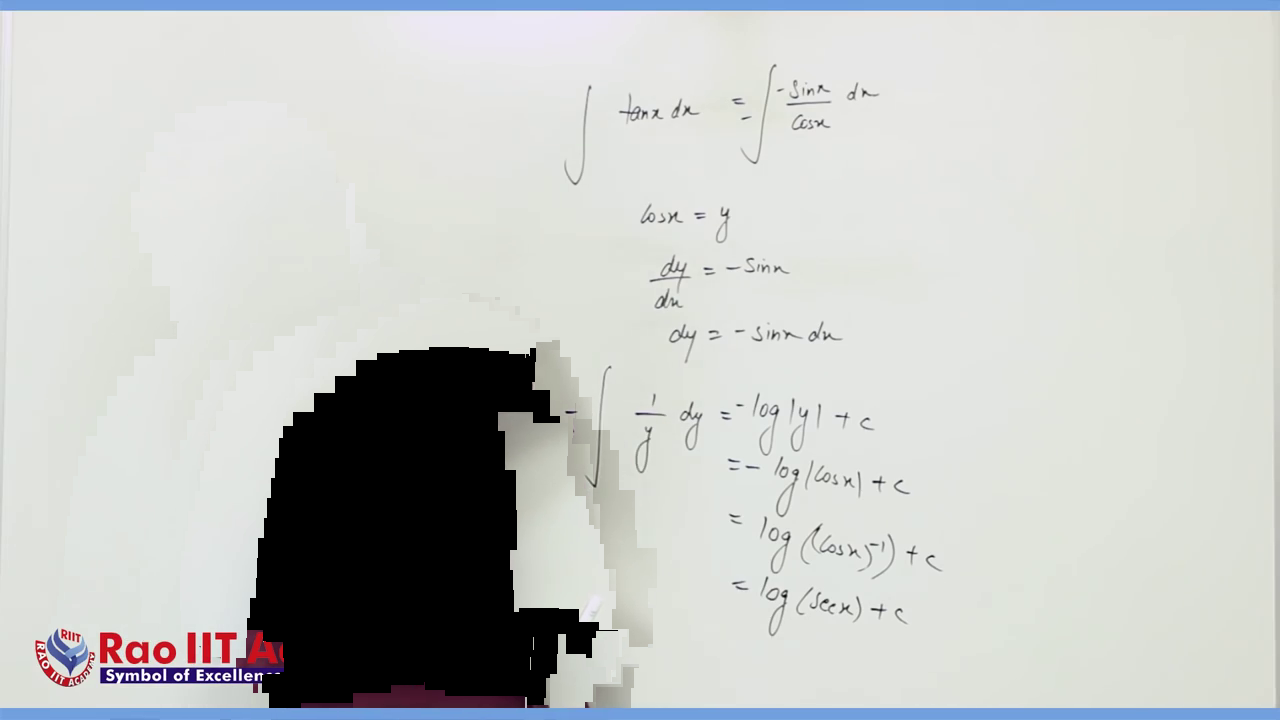 ∫ tanx dx = -∫ -sinx/cosx dx
cosx = y
dy/dx = -sinx
dy = -sinx dx
-∫ 1/y dy = -log|y| + c
= - log|cosx| + c
= log((cosx)⁻¹) + c
= log(secx) + c
RIIT
RAO IIT ACADEMY
Rao IIT
Symbol of Excellence